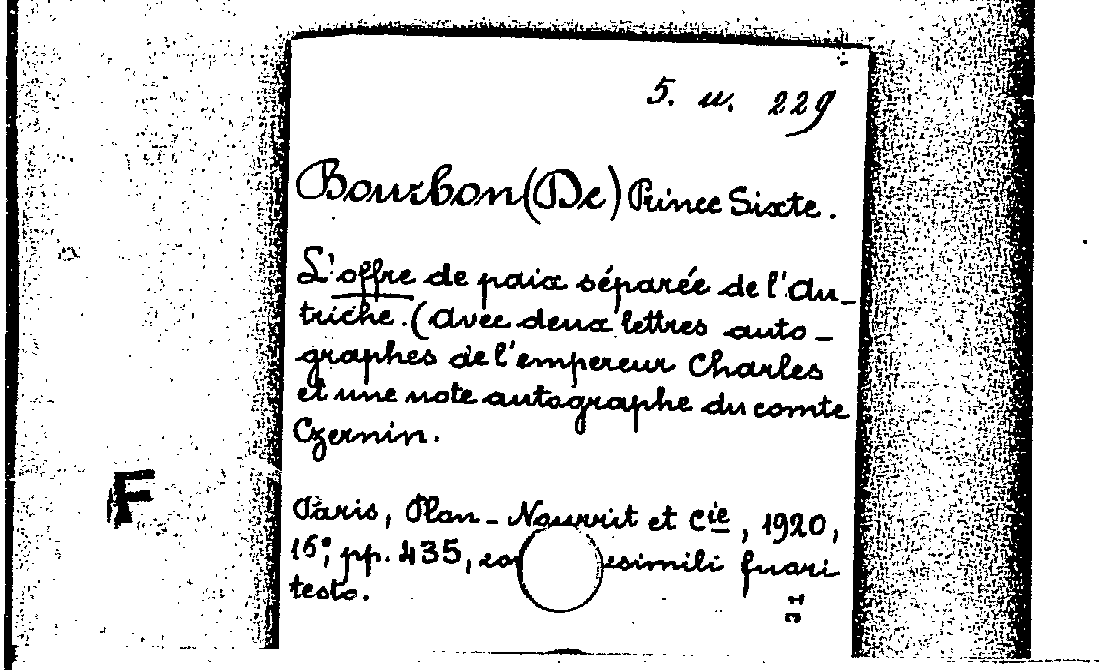 5. w. 229
Bourbon (De) Prince Sixte.
L'offre de paix séparée de l'Au-
triche. (Avec deux lettres auto-
graphes de l'empereur Charles
et une note autographe du comte
Czernin.
F
Paris, Plon-Nourrit et Cie, 1920,
16°, pp. 435, fuori
testo.